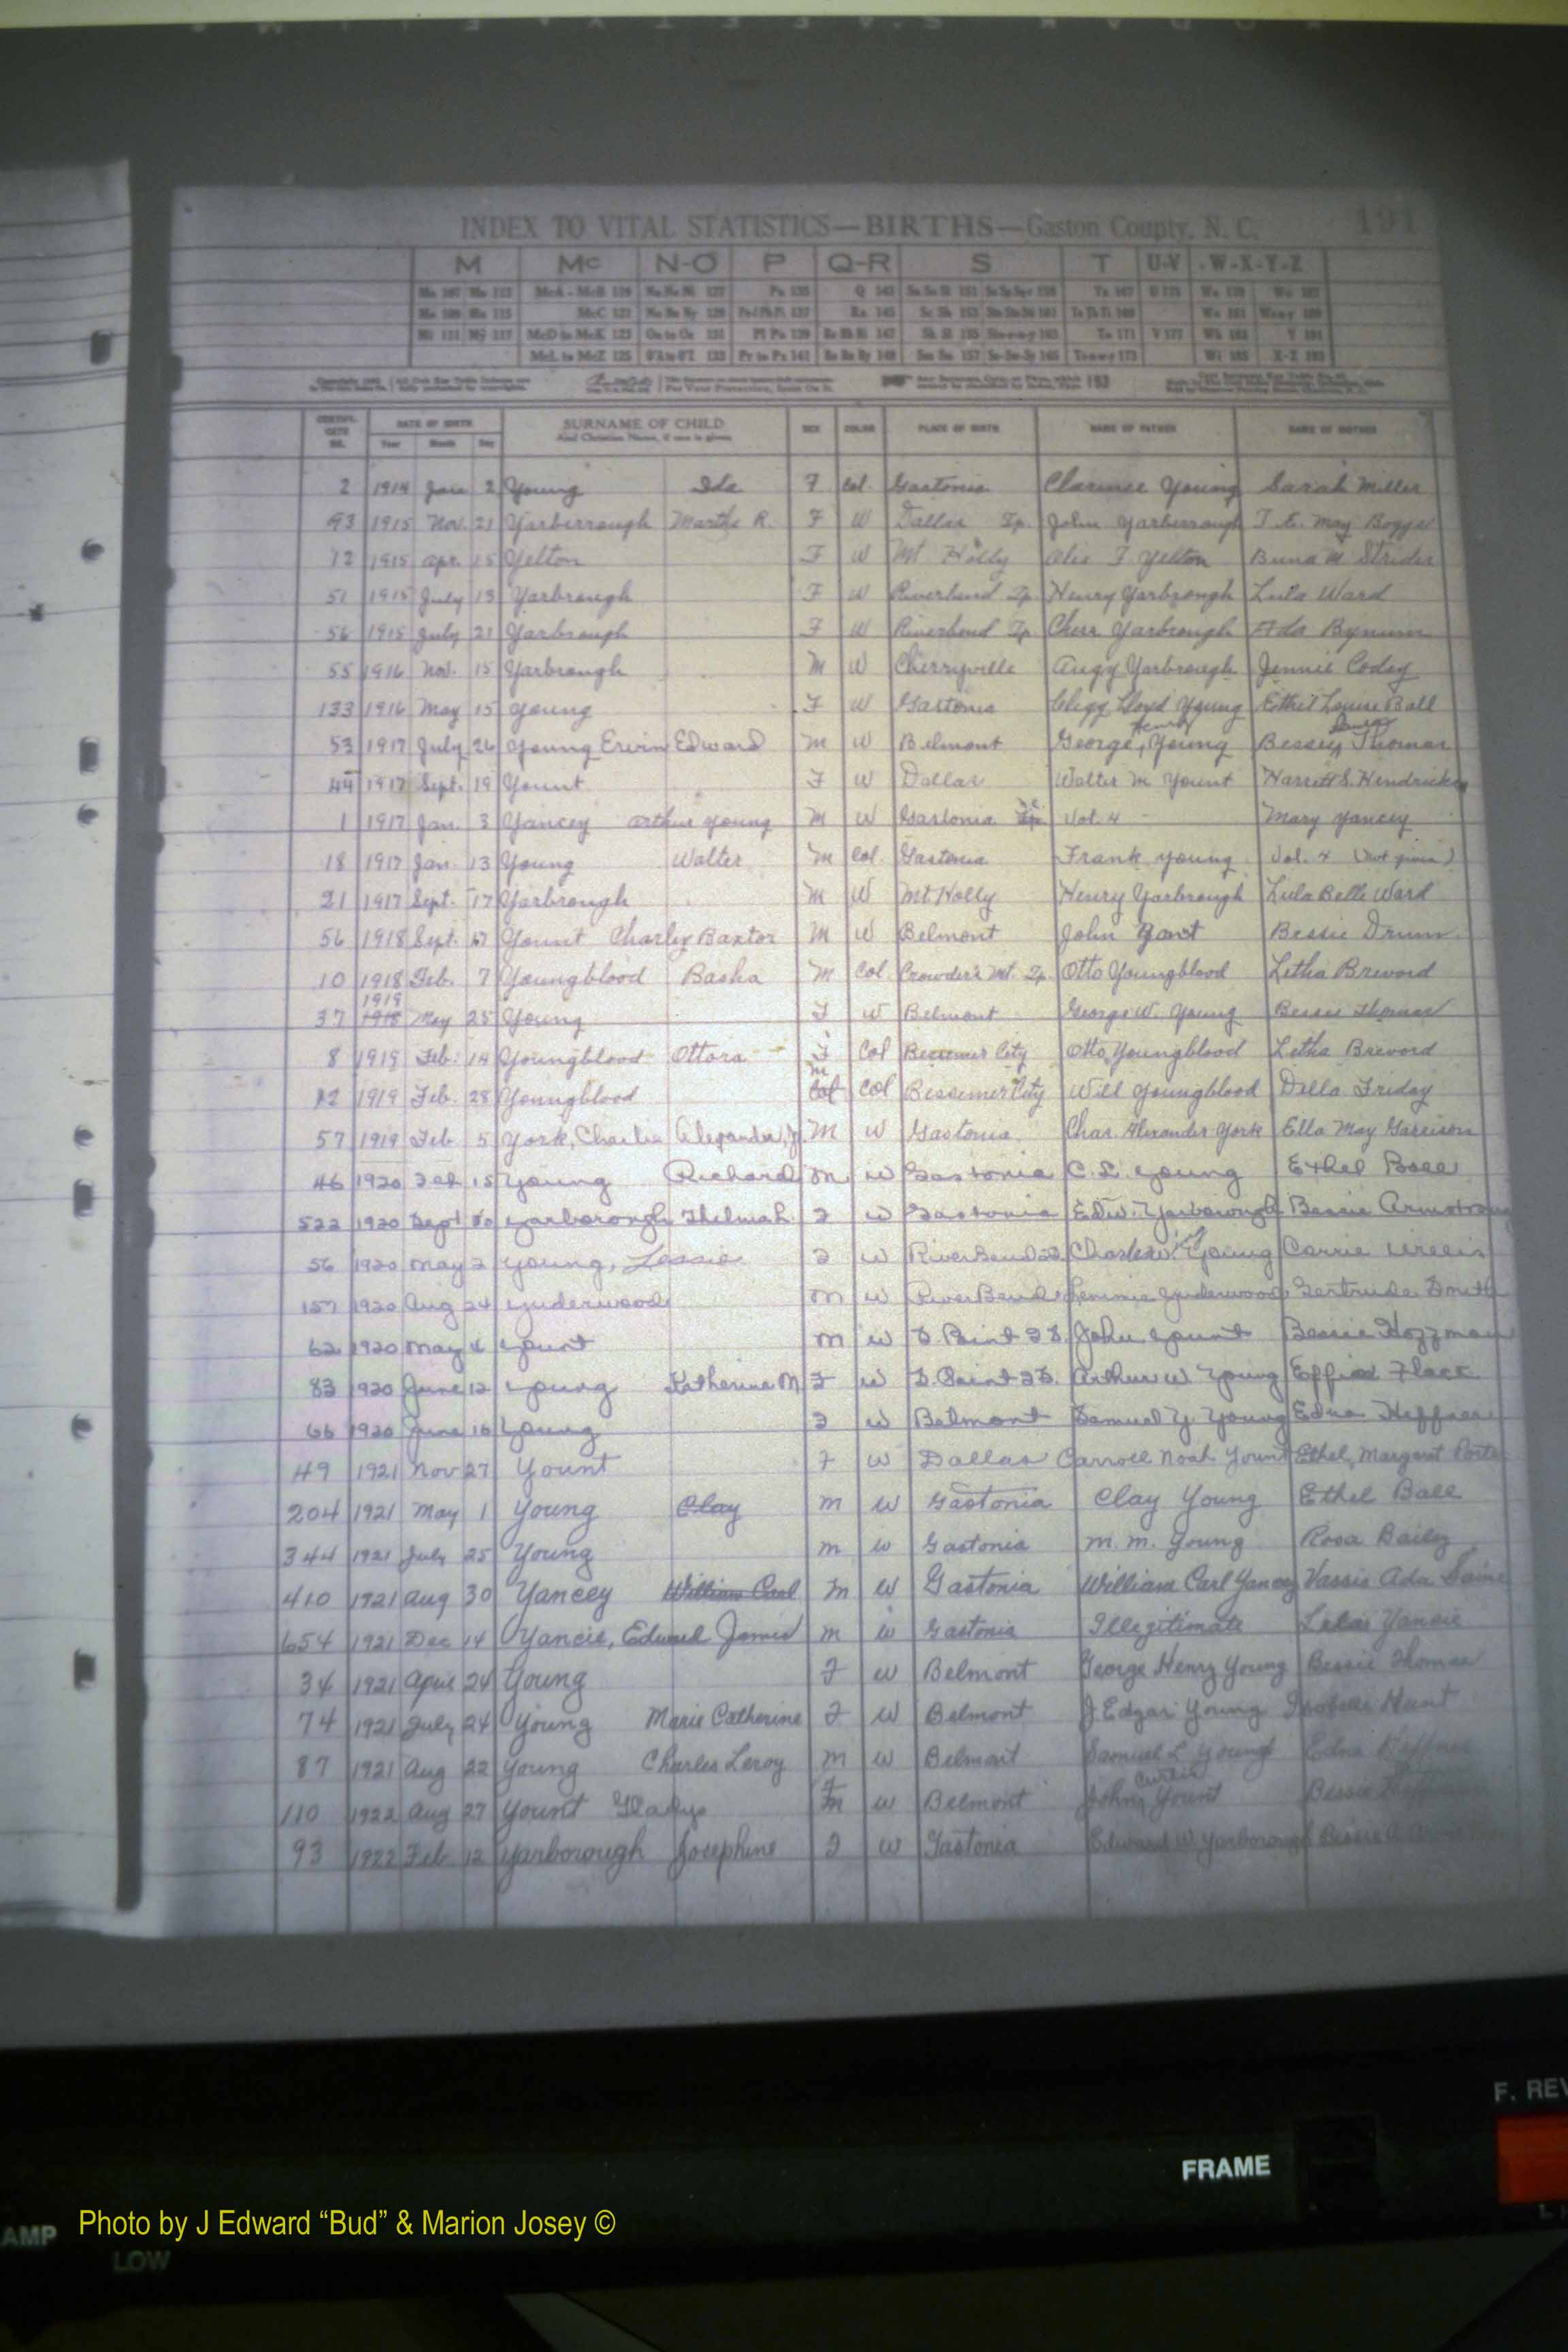 INDEX TO VITAL STATISTICS—BIRTHS—Gaston County, N. C. 191
M Mc N-O P Q-R S T U-V W-X-Y-Z
DATE OF BIRTH SURNAME OF CHILD SEX COLOR PLACE OF BIRTH NAME OF FATHER NAME OF MOTHER
Year Month Day And Christian Name, if one is given
2 1914 Jan 2 Young Ida F Col. Gastonia Clarence Young Sarah Miller
93 1915 Nov. 21 Yarberrough Martha R. F W Dallas Tp. John Yarberrough May
12 1915 Apr. 15 Yelton F W Mt Holly Yelton Buna M Strider
51 1915 July 13 Yarbrough F W Riverbend Tp. Henry Yarbrough Lula Ward
56 1915 July 21 Yarbrough F W Riverbend Tp. Yarbrough Ada Bynum
55 1916 Nov. 15 Yarbrough M W Cherryville Augy Yarbrough Jennie Coday
133 1916 May 15 Young F W Gastonia Clegg Lloyd Young Ethel Louise Ball
53 1917 July 26 Young Ervin Edward M W Belmont George Henry Young Bessie Thomas
44 1917 Sept. 19 Yount F W Dallas Walter M Yount Harrett S. Hendricks
1 1917 Jan. 3 Yancey Arthur Young M W Gastonia Vol. 4 Mary Yancey
18 1917 Jan. 13 Young Walter M Col. Gastonia Frank Young Vol. 4 (not given)
21 1917 Sept. 17 Yarbrough M W Mt Holly Henry Yarbrough Lula Belle Ward
56 1918 Sept. 17 Yount Charley Baxter M W Belmont John Yant Bessie Drum
10 1918 Feb. 7 Youngblood Basha M Col Crowder's Mt. Tp. Otto Youngblood Letha Brevord
1919
37 1918 May 25 Young F W Belmont George W. Young Bessie Thomas
8 1919 Feb. 14 Youngblood Ottora F Col Bessemer City Otto Youngblood Letha Brevord
M
12 1919 Feb. 28 Youngblood Col Col Bessemer City Will Youngblood Della Friday
57 1919 Feb 5 York, Charlie Alexander, Jr. M W Gastonia Chas. Alexander York Ella May Garrison
46 1920 Feb 15 Young Richard M W Gastonia C. L. Young Ethel Ball
522 1920 Sept 10 Yarborough Thelma L. F W Gastonia Edw. Yarborough Bessie Armstrong
56 1920 May 2 Young, Lessie F W River Bend Charles W. Young Carrie
157 1920 Aug 24 Yunderwood M W River Bend Lemmie Yunderwood Gertrude Smith
62 1920 May 4 Yount M W S. Point T.S. John Yount Bessie
83 1920 June 12 Young Katherine M F W S. Point T.S. Arthur W Young Effie Flack
66 1920 June 16 Young F W Belmont Samuel Y. Young Edna Heffner
49 1921 Nov 27 Yount F W Dallas Carroll Noah Yount Ethel Margaret Porter
204 1921 May 1 Young Clay M W Gastonia Clay Young Ethel Ball
344 1921 July 25 Young M W Gastonia M. M. Young Rosa Bailey
410 1921 Aug 30 Yancey William Carl M W Gastonia William Carl Yancey Vassie Ada Saine
654 1921 Dec 14 Yancie, Edward James M W Gastonia Illegitimate Yancie
34 1921 April 24 Young F W Belmont George Henry Young Bessie Thomas
74 1921 July 24 Young Marie Catherine F W Belmont J. Edgar Young Isabelle Hunt
87 1921 Aug 22 Young Charles Leroy M W Belmont Samuel L Young Edna Heffner
F Curtis
110 1922 Aug 27 Yount Gladys M W Belmont John Yount Bessie
93 1922 Feb 12 Yarborough Josephine F W Gastonia Edward W Yarborough Bessie A
F. REV
FRAME
Photo by J Edward “Bud” & Marion Josey ©
AMP
LOW